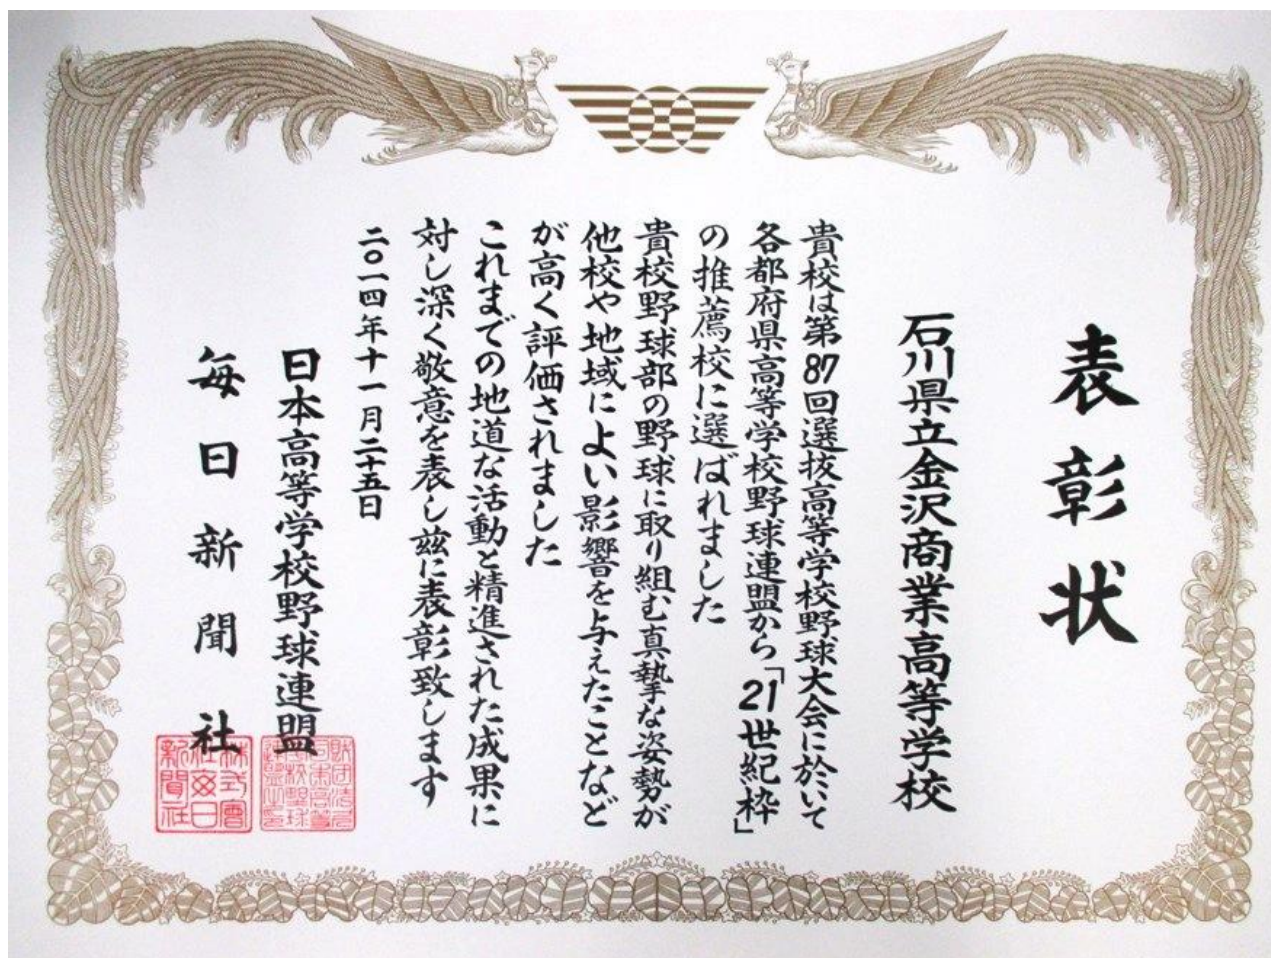 表彰状
石川県立金沢商業高等学校
貴校は第87回選抜高等学校野球大会に於いて
各都府県高等学校野球連盟から「21世紀枠」
の推薦校に選ばれました
貴校野球部の野球に取り組む真摯な姿勢が
他校や地域によい影響を与えたことなど
が高く評価されました
これまでの地道な活動と精進された成果に
対し深く敬意を表し玆に表彰致します
二〇一四年十一月二十五日
日本高等学校野球連盟
毎日新聞社